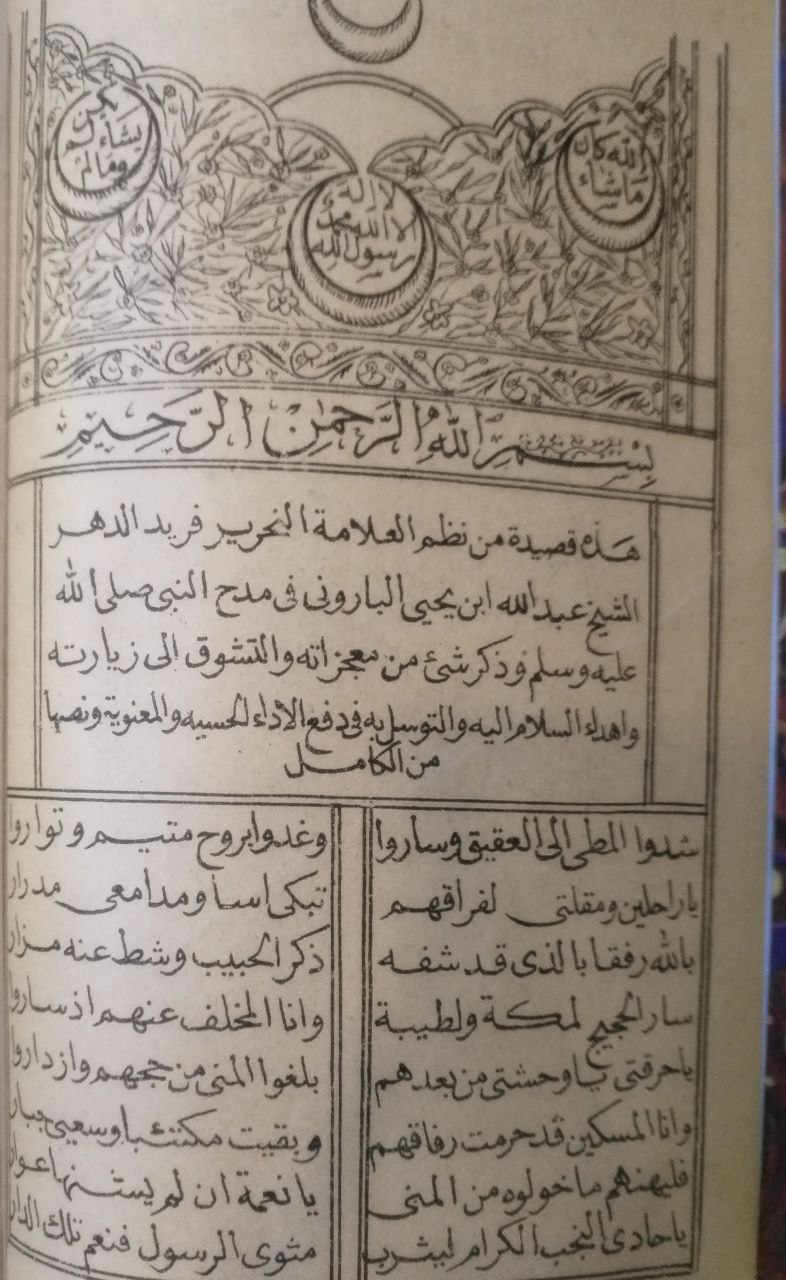 ما شاء الله كان
لا اله الا الله محمد رسول الله
وما لم يشاء لم يكن
بِسْمِ اللهِ الرَّحْمٰنِ الرَّحِيمِ
هذه قصيدة من نظم العلامة النحرير فريد الدهر
الشيخ عبد الله ابن يحيى الباروني في مدح النبي صلى الله
عليه وسلم وذكر شئ من معجزاته والتشوق الى زيارته
واهداء السلام اليه والتوسل به في دفع الاداء الحسيه والمعنوية ونصها
من الكامل
شدوا المطي الى العقيق وساروا وغدوا بروح متيم وتواروا
ياراحلين ومقلتي لفراقهم تبكي اسا ومدامعي مدرار
بالله رفقا بالذي قد شفه ذكر الحبيب وشط عنه مزار
سار الحجيج لمكة ولطيبة وانا المخلف عنهم اذ ساروا
ياحرقتي يا وحشتي من بعدهم بلغوا المنى من حجهم وازداروا
وانا المسكين قد حرمت رفاقهم وبقيت مكتئبا وسعيي جبار
فليهنهم ما خولوه من المنى يا نعمة ان لم يشنها عوار
ياحادي النجب الكرام ليثرب مثوى الرسول فنعم تلك الدار